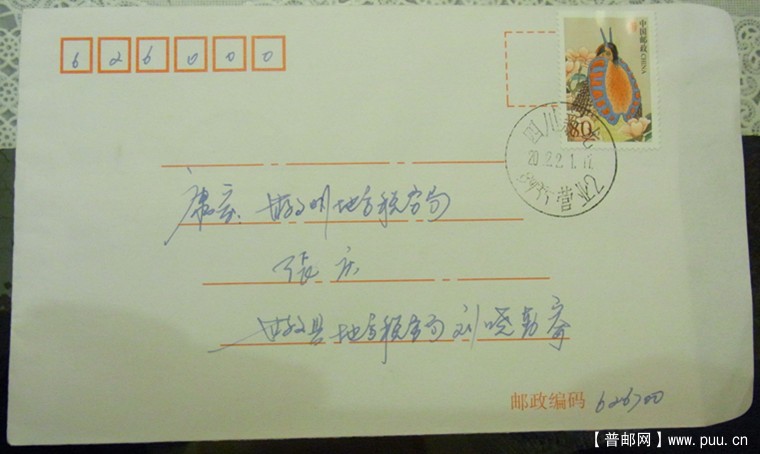 626000
中国邮政
CHINA
80
四川
营业2
康定 甘孜州地方税务局
张庆
甘孜县地方税务局刘晓 寄
邮政编码 626700
【普邮网】www.puu.cn